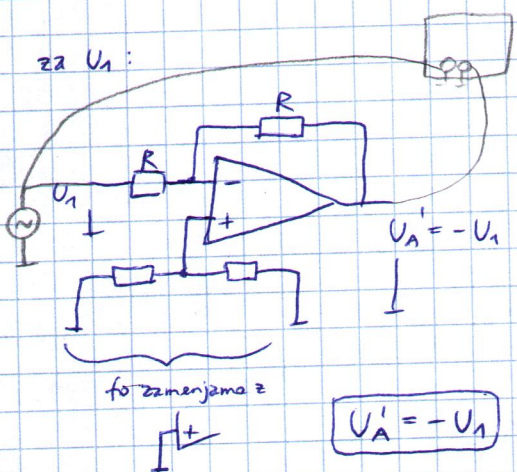 za U₁ :
R
R
U₁
-
+
U_A' = - U₁
to zamenjamo z
+
U_A' = - U₁